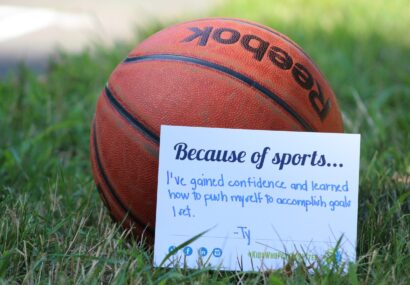 Reebok
Because of sports...
I've gained confidence and learned
how to push myself to accomplish goals
I set.
-Ty